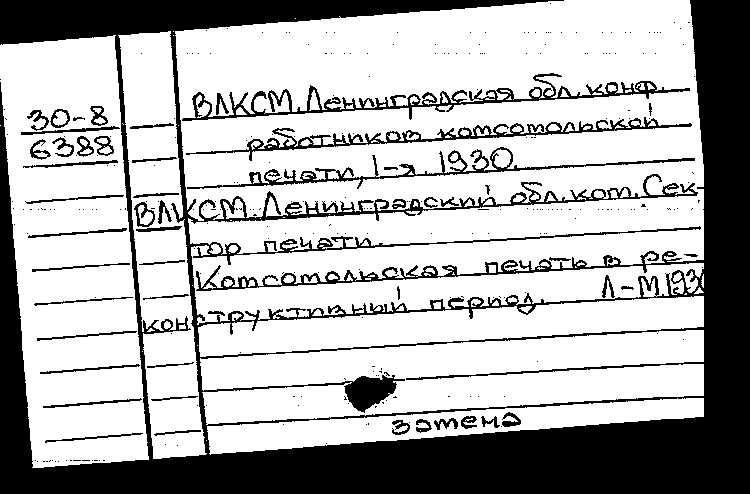 30-8
6388
ВЛКСМ. Ленинградская обл. конф.
работников комсомольской
печати, 1-я. 1930.
ВЛКСМ. Ленинградский обл. ком. Сек-
тор печати.
Комсомольская печать в ре-
конструктивный период. Л-М. 193
замена